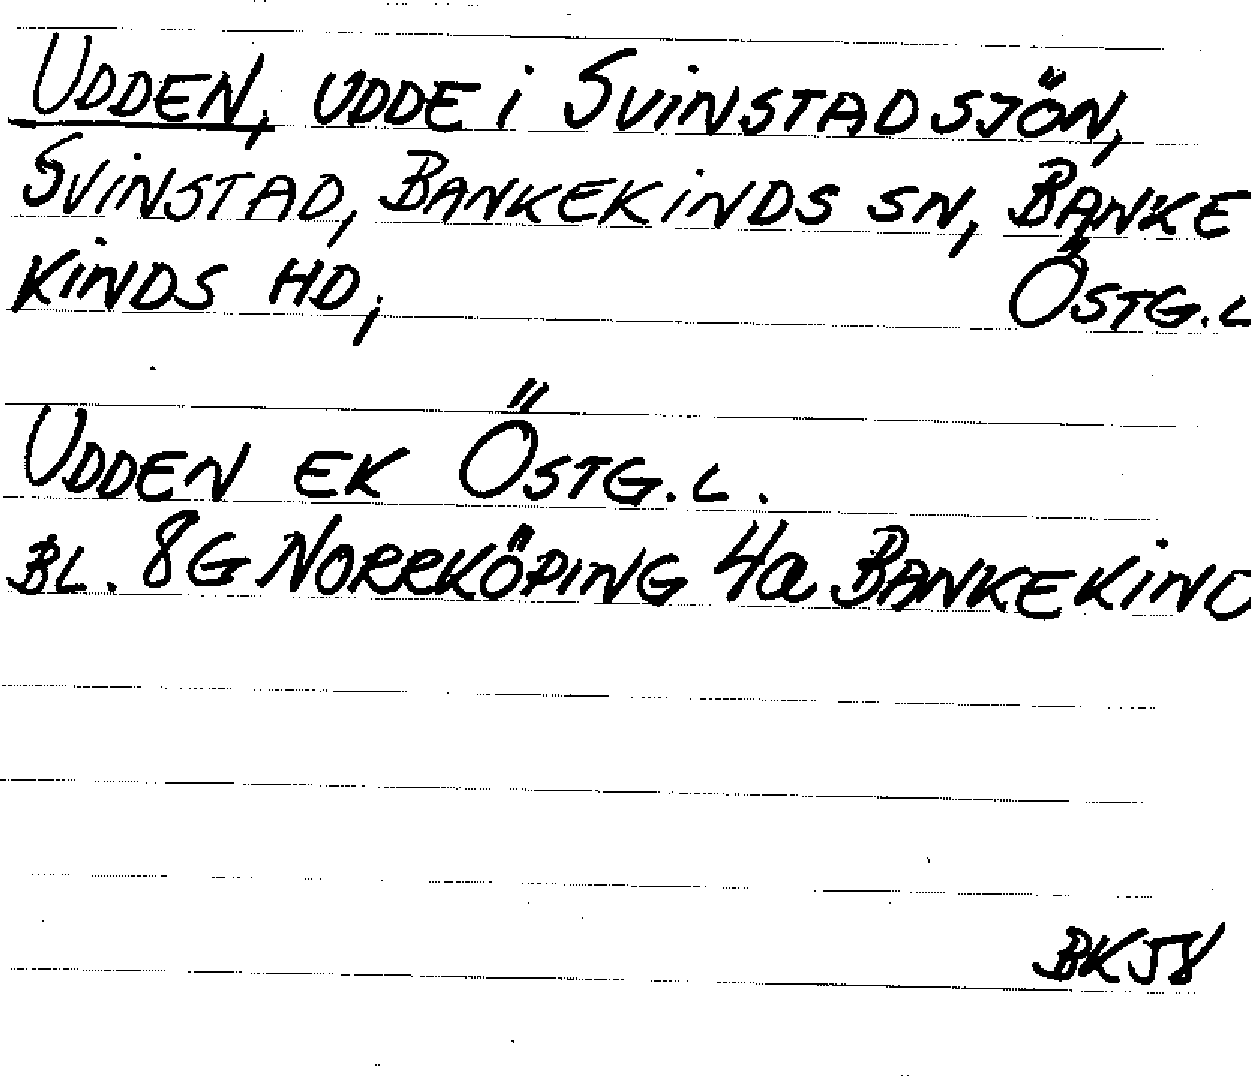 UDDEN, UDDE i SVINSTADSJÖN,
SVINSTAD, BANKEKINDS SN, BANKE
KINDS HD, ÖSTG.L
UDDEN EK ÖSTG.L.
BL. 8G NORRKÖPING 4a BANKEKIND
BK58